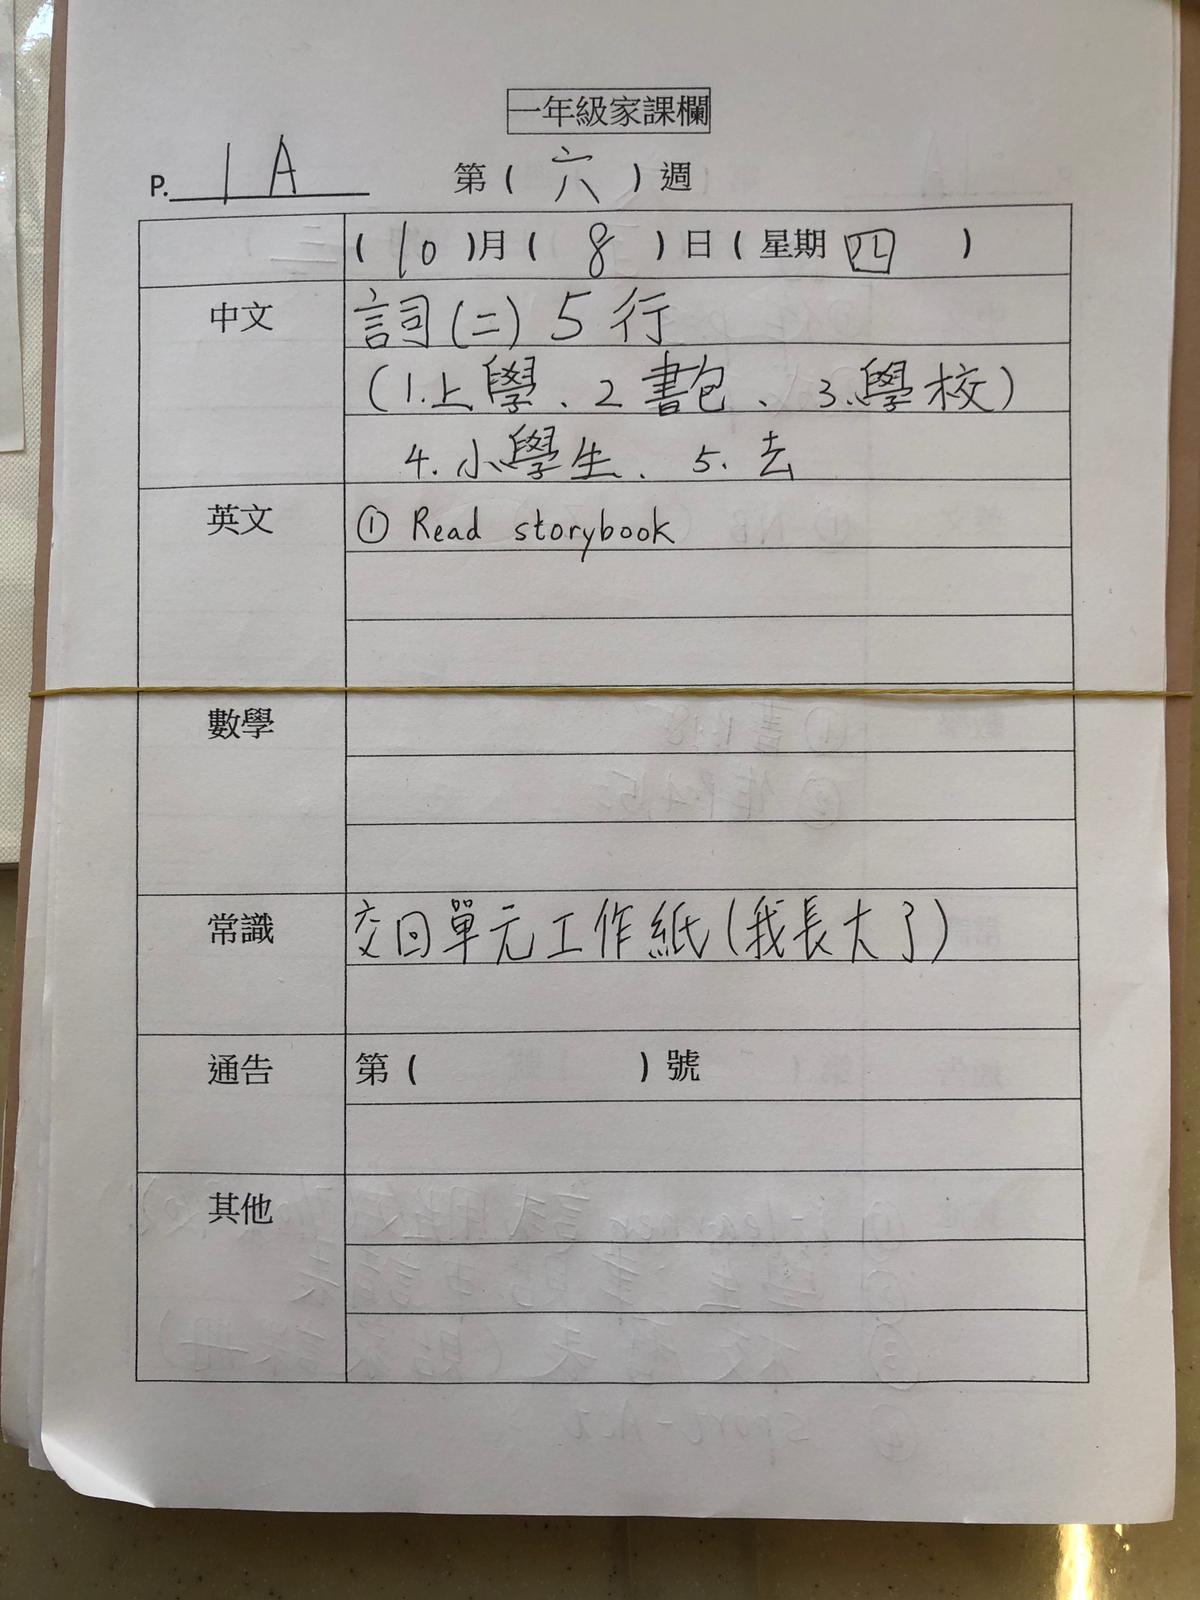 一年級家課欄
P. 1A 第(六)週
(10)月(8)日(星期四)
中文 詞(二) 5行
(1.上學、2書包、3.學校)
4.小學生、5.去
英文 ① Read storybook
數學
常識 交回單元工作紙(我長大了)
通告 第( )號
其他